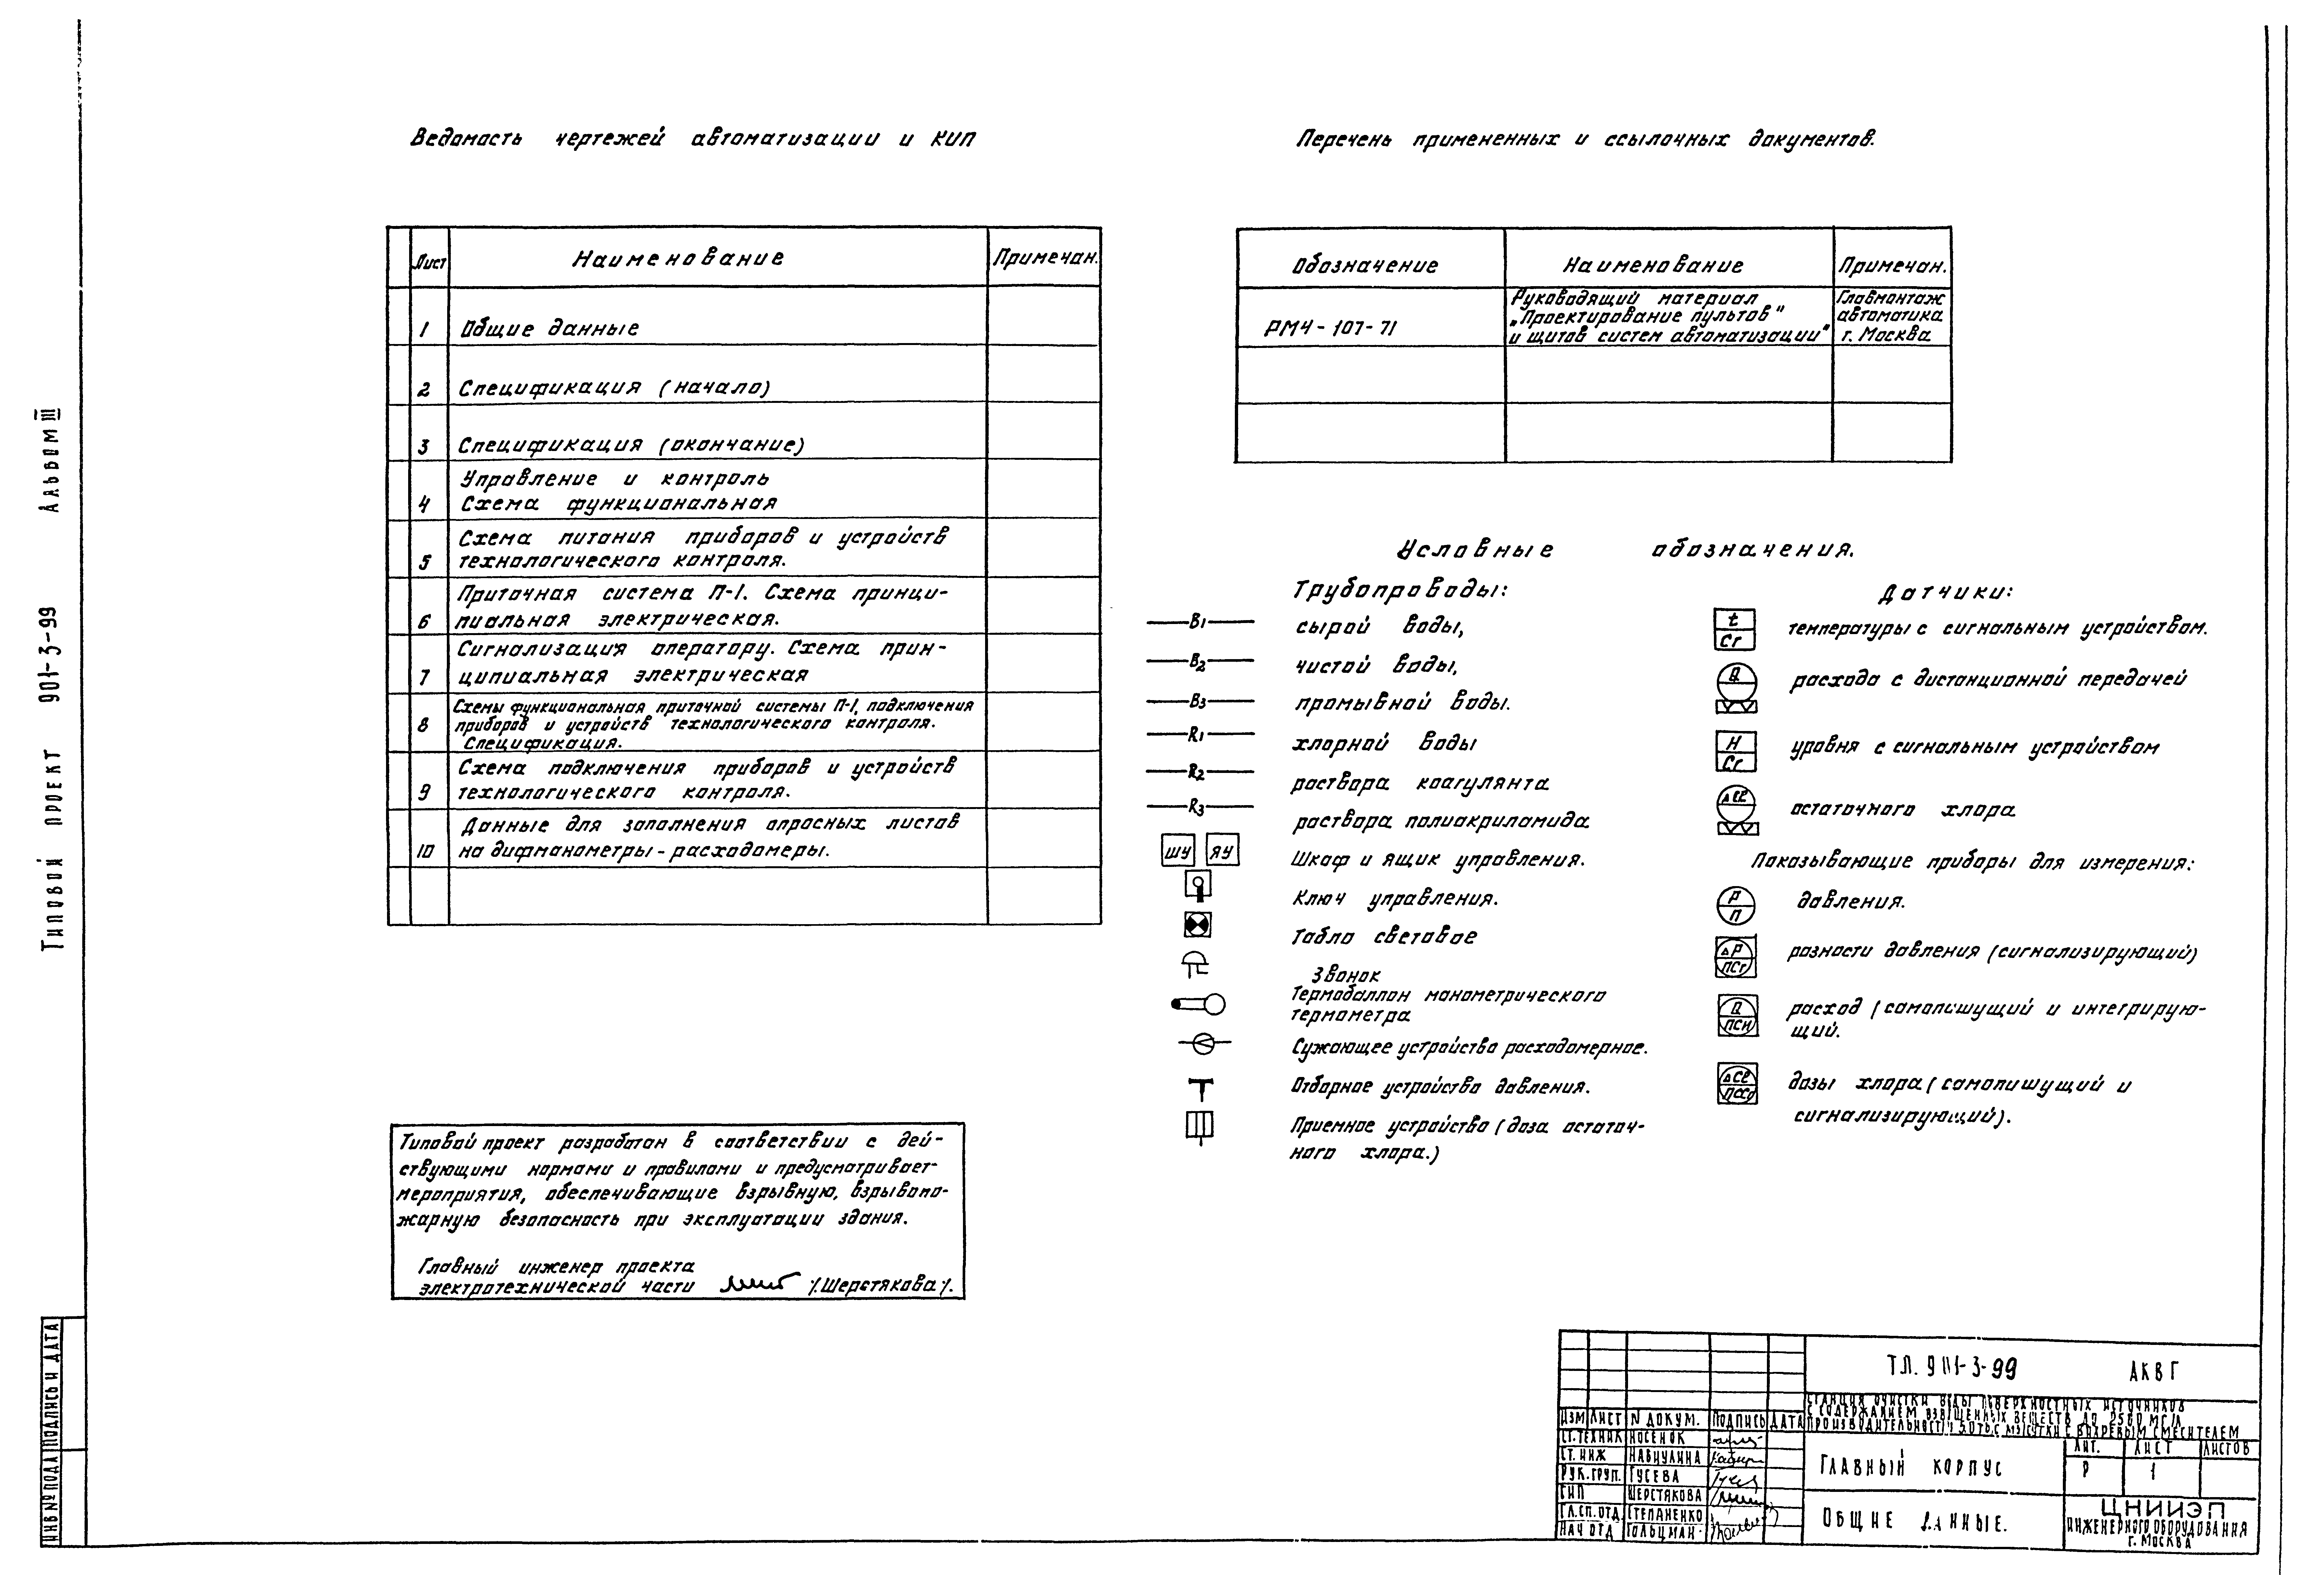 Ведомость чертежей автоматизации и КИП
Лист Наименование Примечан.
1 Общие данные
2 Спецификация (начало)
3 Спецификация (окончание)
Управление и контроль
4 Схема функциональная
Схема питания приборов и устройств
5 технологического контроля.
Приточная система П-1. Схема принци-
6 пиальная электрическая.
Сигнализация оператору. Схема прин-
7 ципиальная электрическая
Схемы функциональная приточной системы П-1, подключения
8 приборов и устройств технологического контроля.
Спецификация.
Схема подключения приборов и устройств
9 технологического контроля.
Данные для заполнения опросных листов
10 на дифманометры-расходомеры.
Типовой проект разработан в соответствии с дей-
ствующими нормами и правилами и предусматривает-
мероприятия, обеспечивающие взрывную, взрывопо-
жарную безопасность при эксплуатации здания.
Главный инженер проекта
электротехнической части /.Шерстякова/.
Перечень примененных и ссылочных документов.
Обозначение Наименование Примечан.
РМ4-107-71
Руководящий материал
„Проектирование пультов"
и щитов систем автоматизации"
Главмонтаж
автоматика
г. Москва
Условные обозначения.
Трубопроводы:
В1 сырой воды,
В2 чистой воды,
В3 промывной воды.
R1 хлорной воды
R2 раствора коагулянта
R3 раствора полиакриламида
ШУ ЯУ Шкаф и ящик управления.
Ключ управления.
Табло световое
Звонок
Термобаллон манометрического
термометра
Сужающее устройство расходомерное.
Отборное устройство давления.
Приемное устройство (доза остаточ-
ного хлора.)
Датчики:
t Сг температуры с сигнальным устройством.
Q расхода с дистанционной передачей
Н Сг уровня с сигнальным устройством
ΔCl остаточного хлора
Показывающие приборы для измерения:
Р П давления.
ΔР ПСг разности давления (сигнализирующий)
Q ПСИ расход (самопишущий и интегрирую-
щий.
ΔCl дозы хлора (самопишущий и
сигнализирующий).
Типовой проект 901-3-99 Альбом III
ИНВ № ПОДЛ ПОДПИСЬ И ДАТА
Т.П. 901-3-99 АКВГ
СТАНЦИЯ ОЧИСТКИ ВОДЫ ПОВЕРХНОСТНЫХ ИСТОЧНИКОВ
С СОДЕРЖАНИЕМ ВЗВЕШЕННЫХ ВЕЩЕСТВ ДО 2500 МГ/Л
ПРОИЗВОДИТЕЛЬНОСТЬЮ 50 ТЫС М3/СУТКИ С ВИХРЕВЫМ СМЕСИТЕЛЕМ
ИЗМ ЛИСТ N ДОКУМ. ПОДПИСЬ ДАТА
СТ.ТЕХНИК НОСЕНОК
СТ. ИНЖ НАБИУЛИНА
РУК.ГРУП. ГУСЕВА
ГИП ШЕРСТЯКОВА
ГЛ.СП.ОТД СТЕПАНЕНКО
НАЧ ОТД ГОЛЬЦМАН
ГЛАВНЫЙ КОРПУС
ЛИТ. ЛИСТ ЛИСТОВ
Р 1
ОБЩИЕ ДАННЫЕ.
ЦНИИЭП
ИНЖЕНЕРНОГО ОБОРУДОВАНИЯ
г. МОСКВА